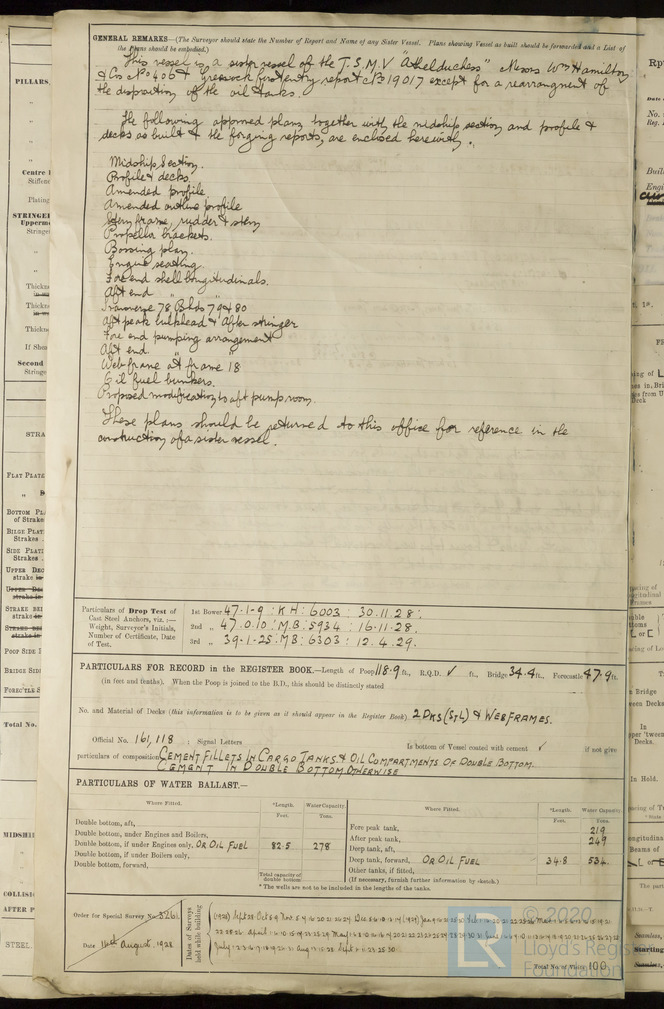 GENERAL REMARKS—(The Surveyor should state the Number of Report and Name of any Sister Vessel. Plans showing Vessel as built should be forwarded and a List of
the Plans should be embodied.)
This vessel is a sister vessel of the T.S.M.V "Athelduchess" Messrs Wm Hamilton
& Co No 406 & Greenock first entry report No 19017 except for a rearrangment of
the disposition of the oil tanks.
The following approved plans together with the midship section and profile &
decks as built & the forging reports, are enclosed herewith.
Midship Section.
Profile & decks.
Amended profile.
Amended outline profile
Stern frame, rudder & stem
Propellor brackets.
Bossing plan.
Engine seating.
Fore end shell longitudinals.
Aft end " "
Transverse 78 (Blhds 79 & 80
Aft peak bulkhead & After stringer
Fore end pumping arrangement
Aft end. " "
Web frame at frame 18
Oil fuel bunkers.
Proposed modification to aft pump room.
These plans should be returned to this office for reference in the
construction of a sister vessel.
Particulars of Drop Test of
Cast Steel Anchors, viz.:—
Weight, Surveyor's Initials,
Number of Certificate, Date
of Test.
1st Bower 47-1-9 : K H : 6003 : 30.11.28.
2nd " 47.0.10 : M.B : 5934 : 16-11-28.
3rd " 39-1-25 : M B : 6303 : 12.4.29.
PARTICULARS FOR RECORD in the REGISTER BOOK.—Length of Poop 118.9 ft., R.Q.D. ✓ ft., Bridge 34.4 ft., Forecastle 47.9 ft.
(in feet and tenths). When the Poop is joined to the B.D., this should be distinctly stated
No. and Material of Decks (this information is to be given as it should appear in the Register Book) 2 DKS (STL) & WEB FRAMES.
Official No. 161,118 : Signal Letters Is bottom of Vessel coated with cement ✓ if not give
particulars of composition CEMENT FILLETS IN CARGO TANKS & OIL COMPARTMENTS OF DOUBLE BOTTOM.
CEMENT IN DOUBLE BOTTOM OTHERWISE
PARTICULARS OF WATER BALLAST.—
Where Fitted. *Length. Water Capacity. Where Fitted. *Length. Water Capacity.
Feet. Tons. Feet. Tons.
Double bottom, aft, Fore peak tank, 219
Double bottom, under Engines and Boilers, After peak tank, 249
Double bottom, if under Engines only, OR OIL FUEL 82.5 278 Deep tank, aft,
Double bottom, if under Boilers only, Deep tank, forward, OR OIL FUEL 34.8 534.
Double bottom, forward, Other tanks, if fitted,
Total capacity of double bottom (If necessary, furnish further information by sketch.)
* The wells are not to be included in the lengths of the tanks.
Order for Special Survey No. 5261
Date 16th August, 1928
Dates of Surveys held while building
Total No. of Visits 100
© 2020
LR
Lloyd's Register
Foundation